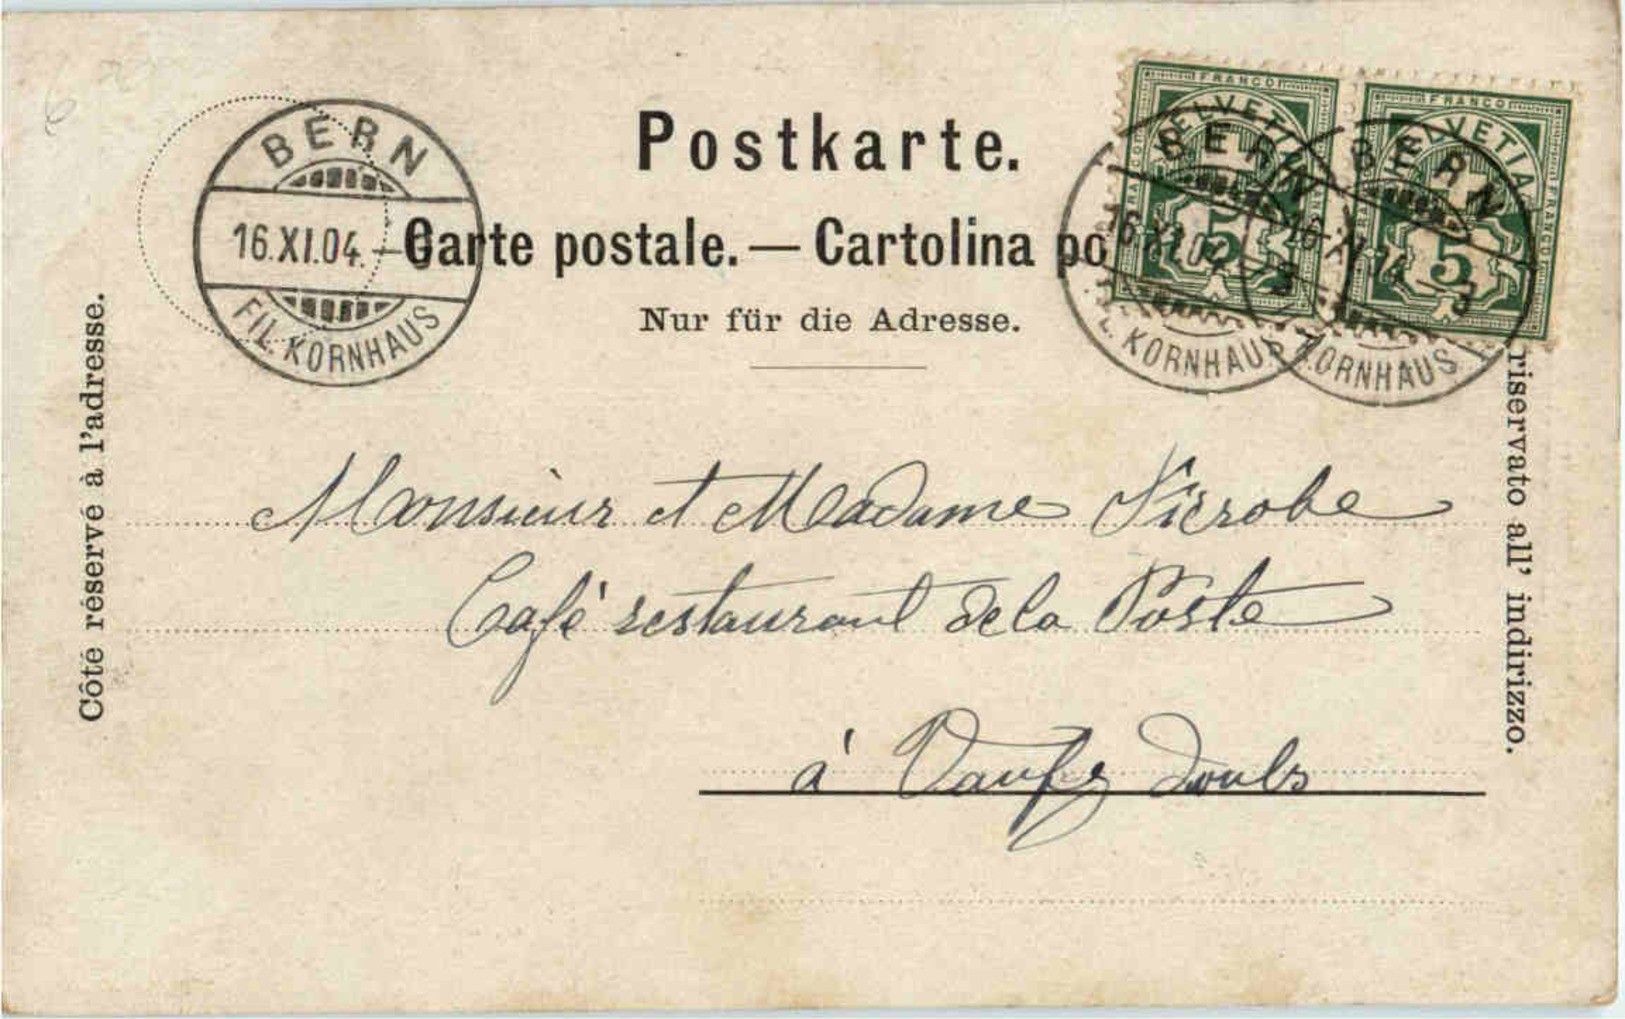 Postkarte.
Carte postale. — Cartolina po
Nur für die Adresse.
BERN
16.XI.04.
FIL. KORNHAUS
FRANCO
HELVETIA
5
BERN
16.XI.04
KORNHAUS
FRANCO
HELVETIA
5
BERN
16.XI.04–3
KORNHAUS
Côté réservé à l'adresse.
riservato all' indirizzo.
Monsieur et Madame
Café restaurant de la Poste
à Doubs